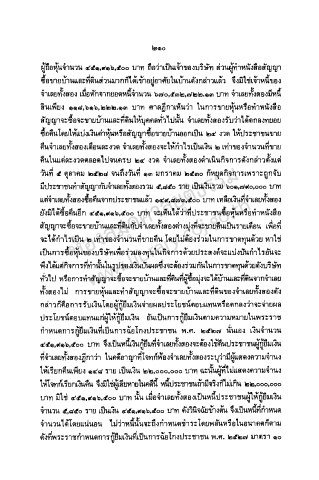 ๒๑๐
ผู้ถือหุ้นจำนวน ๔๕๑,๙๑๖,๕๐๐ บาท ถือว่าเป็นเจ้าของบริษัท ส่วนผู้ทำหนังสือสัญญา
ซื้อขายบ้านและที่ดินส่วนมากก็ได้เข้าอยู่อาศัยในบ้านดังกล่าวแล้ว จึงมิใช่เจ้าหนี้ของ
จำเลยทั้งสอง เมื่อหักจากยอดหนี้จำนวน ๖๗๐,๕๓๒,๗๒๒.๑๓ บาท จำเลยทั้งสองมีหนี้
สินเพียง ๑๑๘,๖๑๖,๒๒๒.๑๓ บาท ศาลฎีกาเห็นว่า ในการขายหุ้นหรือทำหนังสือ
สัญญาจะซื้อจะขายบ้านและที่ดินให้บุคคลทั่วไปนั้น จำเลยทั้งสองรับว่าได้ตกลงยอม
ซื้อคืนโดยให้แบ่งเงินค่าหุ้นหรือสัญญาซื้อขายบ้านออกเป็น ๒๔ งวด ให้ประชาชนขาย
คืนจำเลยทั้งสองเดือนละงวด จำเลยทั้งสองจะให้กำไรเป็นเงิน ๒ เท่าของจำนวนที่ขาย
คืนในแต่ละงวดตลอดไปจนครบ ๒๔ งวด จำเลยทั้งสองดำเนินกิจการดังกล่าวตั้งแต่
วันที่ ๕ ตุลาคม ๒๕๒๙ จนถึงวันที่ ๑๓ มกราคม ๒๕๓๐ ก็หยุดกิจการเพราะถูกจับ
มีประชาชนทำสัญญากับจำเลยทั้งสองรวม ๕,๘๕๐ ราย เป็นเงินรวม ๖๐๑,๗๙๐,๐๐๐ บาท
แต่จำเลยทั้งสองซื้อคืนจากประชาชนแล้ว ๑๔๙,๘๗๓,๕๐๐ บาท เหลือเงินที่จำเลยทั้งสอง
ยังมิได้ซื้อคืนอีก ๔๕๑,๙๑๖,๕๐๐ บาท จะเห็นได้ว่าที่ประชาชนซื้อหุ้นหรือทำหนังสือ
สัญญาจะซื้อจะขายบ้านและที่ดินกับจำเลยทั้งสองต่างมุ่งที่จะขายคืนเป็นรายเดือน เพื่อที่
จะได้กำไรเป็น ๒ เท่าของจำนวนที่ขายคืน โดยไม่ต้องร่วมในการขาดทุนด้วย หาใช่
เป็นการซื้อหุ้นของบริษัทเพื่อร่วมลงทุนในกิจการด้วยประสงค์จะแบ่งปันกำไรอันจะ
พึงได้แต่กิจการที่ทำนั้นในรูปของเงินปันผลซึ่งจะต้องร่วมกันในการขาดทุนด้วยดังบริษัท
ทั่วไป หรือการทำสัญญาจะซื้อจะขายบ้านและที่ดินที่ผู้ซื้อมุ่งจะได้บ้านและที่ดินจากจำเลย
ทั้งสองไม่ การขายหุ้นและทำสัญญาจะซื้อจะขายบ้านและที่ดินของจำเลยทั้งสองดัง
กล่าวก็คือการรับเงินโดยผู้กู้ยืมเงินจ่ายผลประโยชน์ตอบแทนหรือตกลงว่าจะจ่ายผล
ประโยชน์ตอบแทนแก่ผู้ให้กู้ยืมเงิน อันเป็นการกู้ยืมเงินตามความหมายในพระราช
กำหนดการกู้ยืมเงินที่เป็นการฉ้อโกงประชาชน พ.ศ. ๒๕๒๗ นั่นเอง เงินจำนวน
๔๕๑,๙๑๖,๕๐๐ บาท จึงเป็นหนี้เงินกู้ยืมที่จำเลยทั้งสองจะต้องใช้คืนประชาชนผู้กู้ยืมเงิน
ที่จำเลยทั้งสองฎีกาว่า ในคดีอาญาที่โจทก์ฟ้องจำเลยทั้งสองระบุว่ามีผู้แสดงความจำนง
ให้เรียกคืนเพียง ๑๑๙ ราย เป็นเงิน ๒๒,๐๐๐,๐๐๐ บาท ฉะนั้นผู้ที่ไม่แสดงความจำนง
ให้โจทก์เรียกเงินคืน จึงมิใช่ผู้เสียหายในคดีนี้ หนี้ประชาชนถ้ามีจริงก็ไม่เกิน ๒๒,๐๐๐,๐๐๐
บาท มิใช่ ๔๕๑,๙๑๖,๕๐๐ บาท นั้น เมื่อจำเลยทั้งสองเป็นหนี้ประชาชนผู้ให้กู้ยืมเงิน
จำนวน ๕,๘๕๐ ราย เป็นเงิน ๔๕๑,๙๑๖,๕๐๐ บาท ดังวินิจฉัยข้างต้น จึงเป็นหนี้ที่กำหนด
จำนวนได้โดยแน่นอน ไม่ว่าหนี้นั้นจะถึงกำหนดชำระโดยพลันหรือในอนาคตก็ตาม
ดังที่พระราชกำหนดการกู้ยืมเงินที่เป็นการฉ้อโกงประชาชน พ.ศ. ๒๕๒๗ มาตรา ๑๐